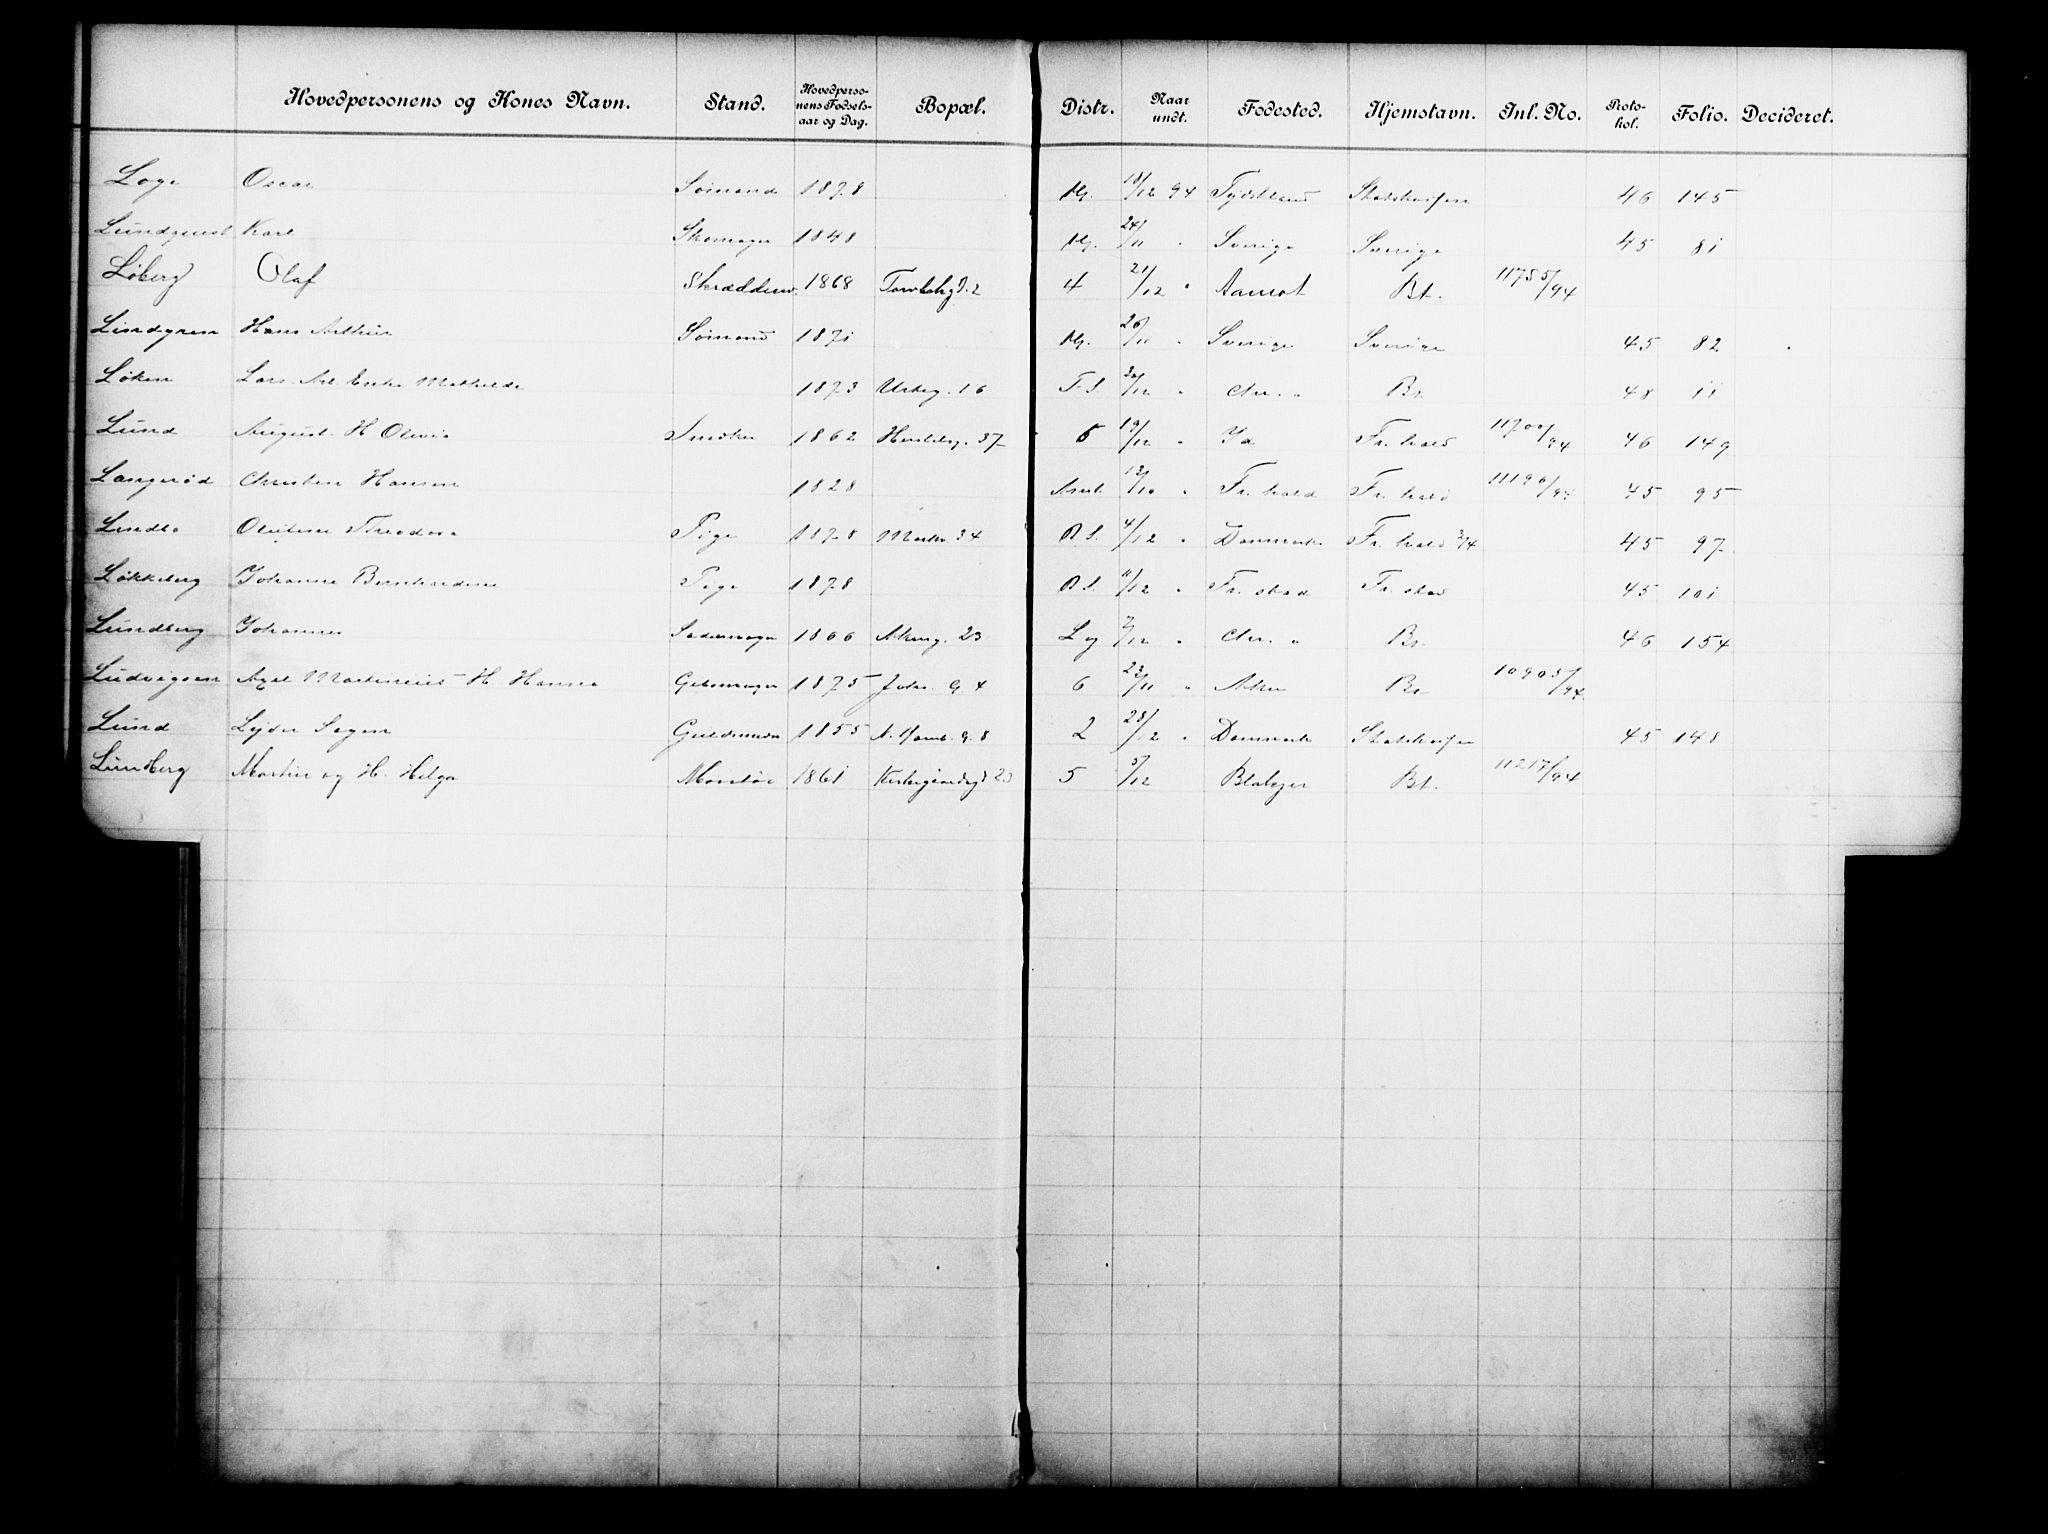 Hovedpersonens og Kones Navn. Stand. Hovedpersonens Fødselsaar og Dag. Bopæl. Distr. Naar undt. Fødested. Hjemstavn. Inl. No. Protokol. Folio. Decideret.
Oscar Sømand 1878 18/12 94 Tydskland Statskassen 46 145
Lundquist Karl Skomager 1848 24/11 " Sverige Sverige 45 81
Løberg Olaf Skrædder 1868 4 21/12 " Bt. 11755/94
Lindgren Hans Arthur Sømand 1871 26/11 " Sverige Sverige 45 82
Løken Lars Enke Mathilde 1873 Urteg. 16 F.S. 20/12 " Chr. " Bt. 48 11
Lund August H Olivia Snedker 1862 37 5 19/12 " Id Fr. hald 11700/94 46 149
Langerød Christen Hansen 1828 12/10 " Fr. hald Fr. hald 11190/94 45 95
Theodora Pige 1878 Markv. 34 R.S. 4/12 " Danmark Fr. hald 45 97
Løkkeberg Johanne Bernhardine Pige 1878 R.S. 11/12 " Fr. stad Fr. stad 45 101
Lundberg Johannes Sadelmager 1866 Akersg. 23 /12 " Chr. " Bt. 46 154
Ludvigsen Axel Martinius H. Hanna 1875 G. 4 6 23/11 " Aker Bt 10905/94
Lund Guldsmed 1855 G. 8 2 28/12 " Danmark Statskassen 45 148
Lundberg Martin og H. Helga 1861 Kirkegaardsgd 23 5 5/12 Bt. 11217/94